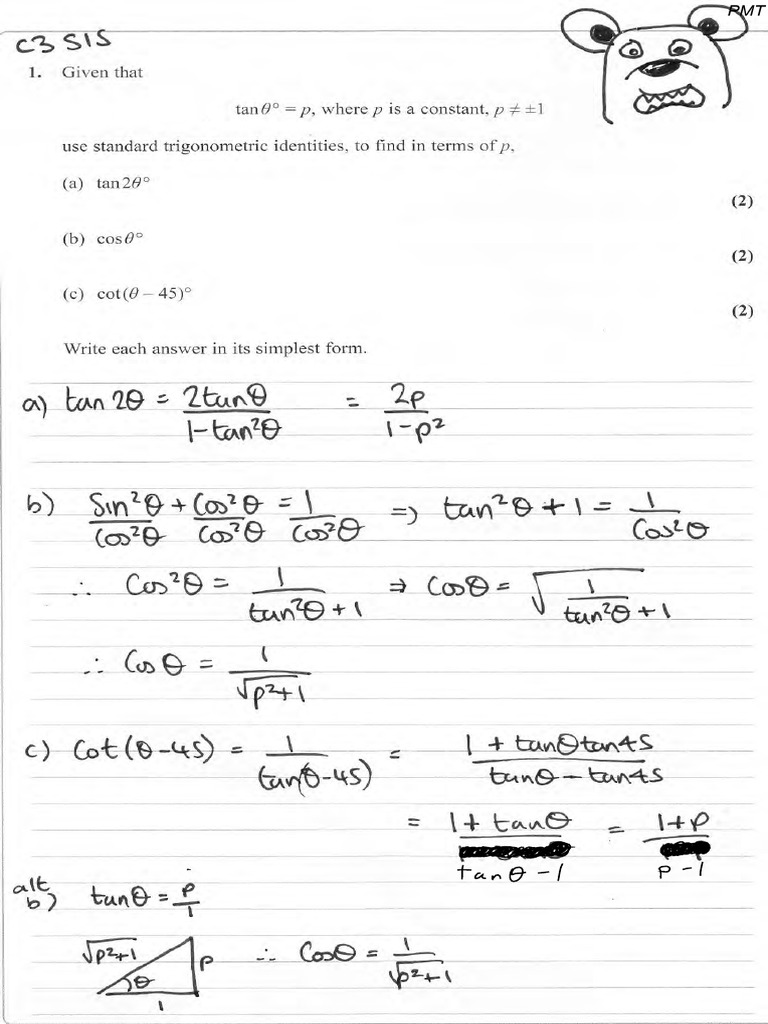 PMT
C3 S15
1. Given that
tan θ° = p, where p is a constant, p ≠ ±1
use standard trigonometric identities, to find in terms of p,
(a) tan 2θ°
(2)
(b) cos θ°
(2)
(c) cot(θ – 45)°
(2)
Write each answer in its simplest form.
a) tan 2θ = 2tanθ / 1-tan²θ = 2p / 1-p²
b) Sin²θ / Cos²θ + Cos²θ / Cos²θ = 1 / Cos²θ => tan²θ + 1 = 1 / Cos²θ
∴ Cos²θ = 1 / tan²θ + 1 ⇒ Cosθ = √(1 / tan²θ + 1)
∴ Cos θ = 1 / √p²+1
c) Cot(θ-45) = 1 / tan(θ-45) = 1 + tanθtan45 / tanθ - tan45
= 1 + tanθ / tanθ - 1 = 1+p / p-1
alt
b) tanθ = p / 1
√p²+1 θ p 1 ∴ Cosθ = 1 / √p²+1